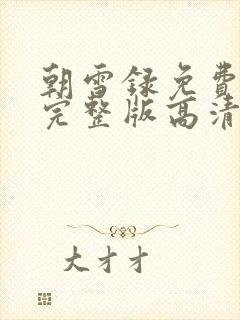 朝雪録免費
完整版高清
大才才